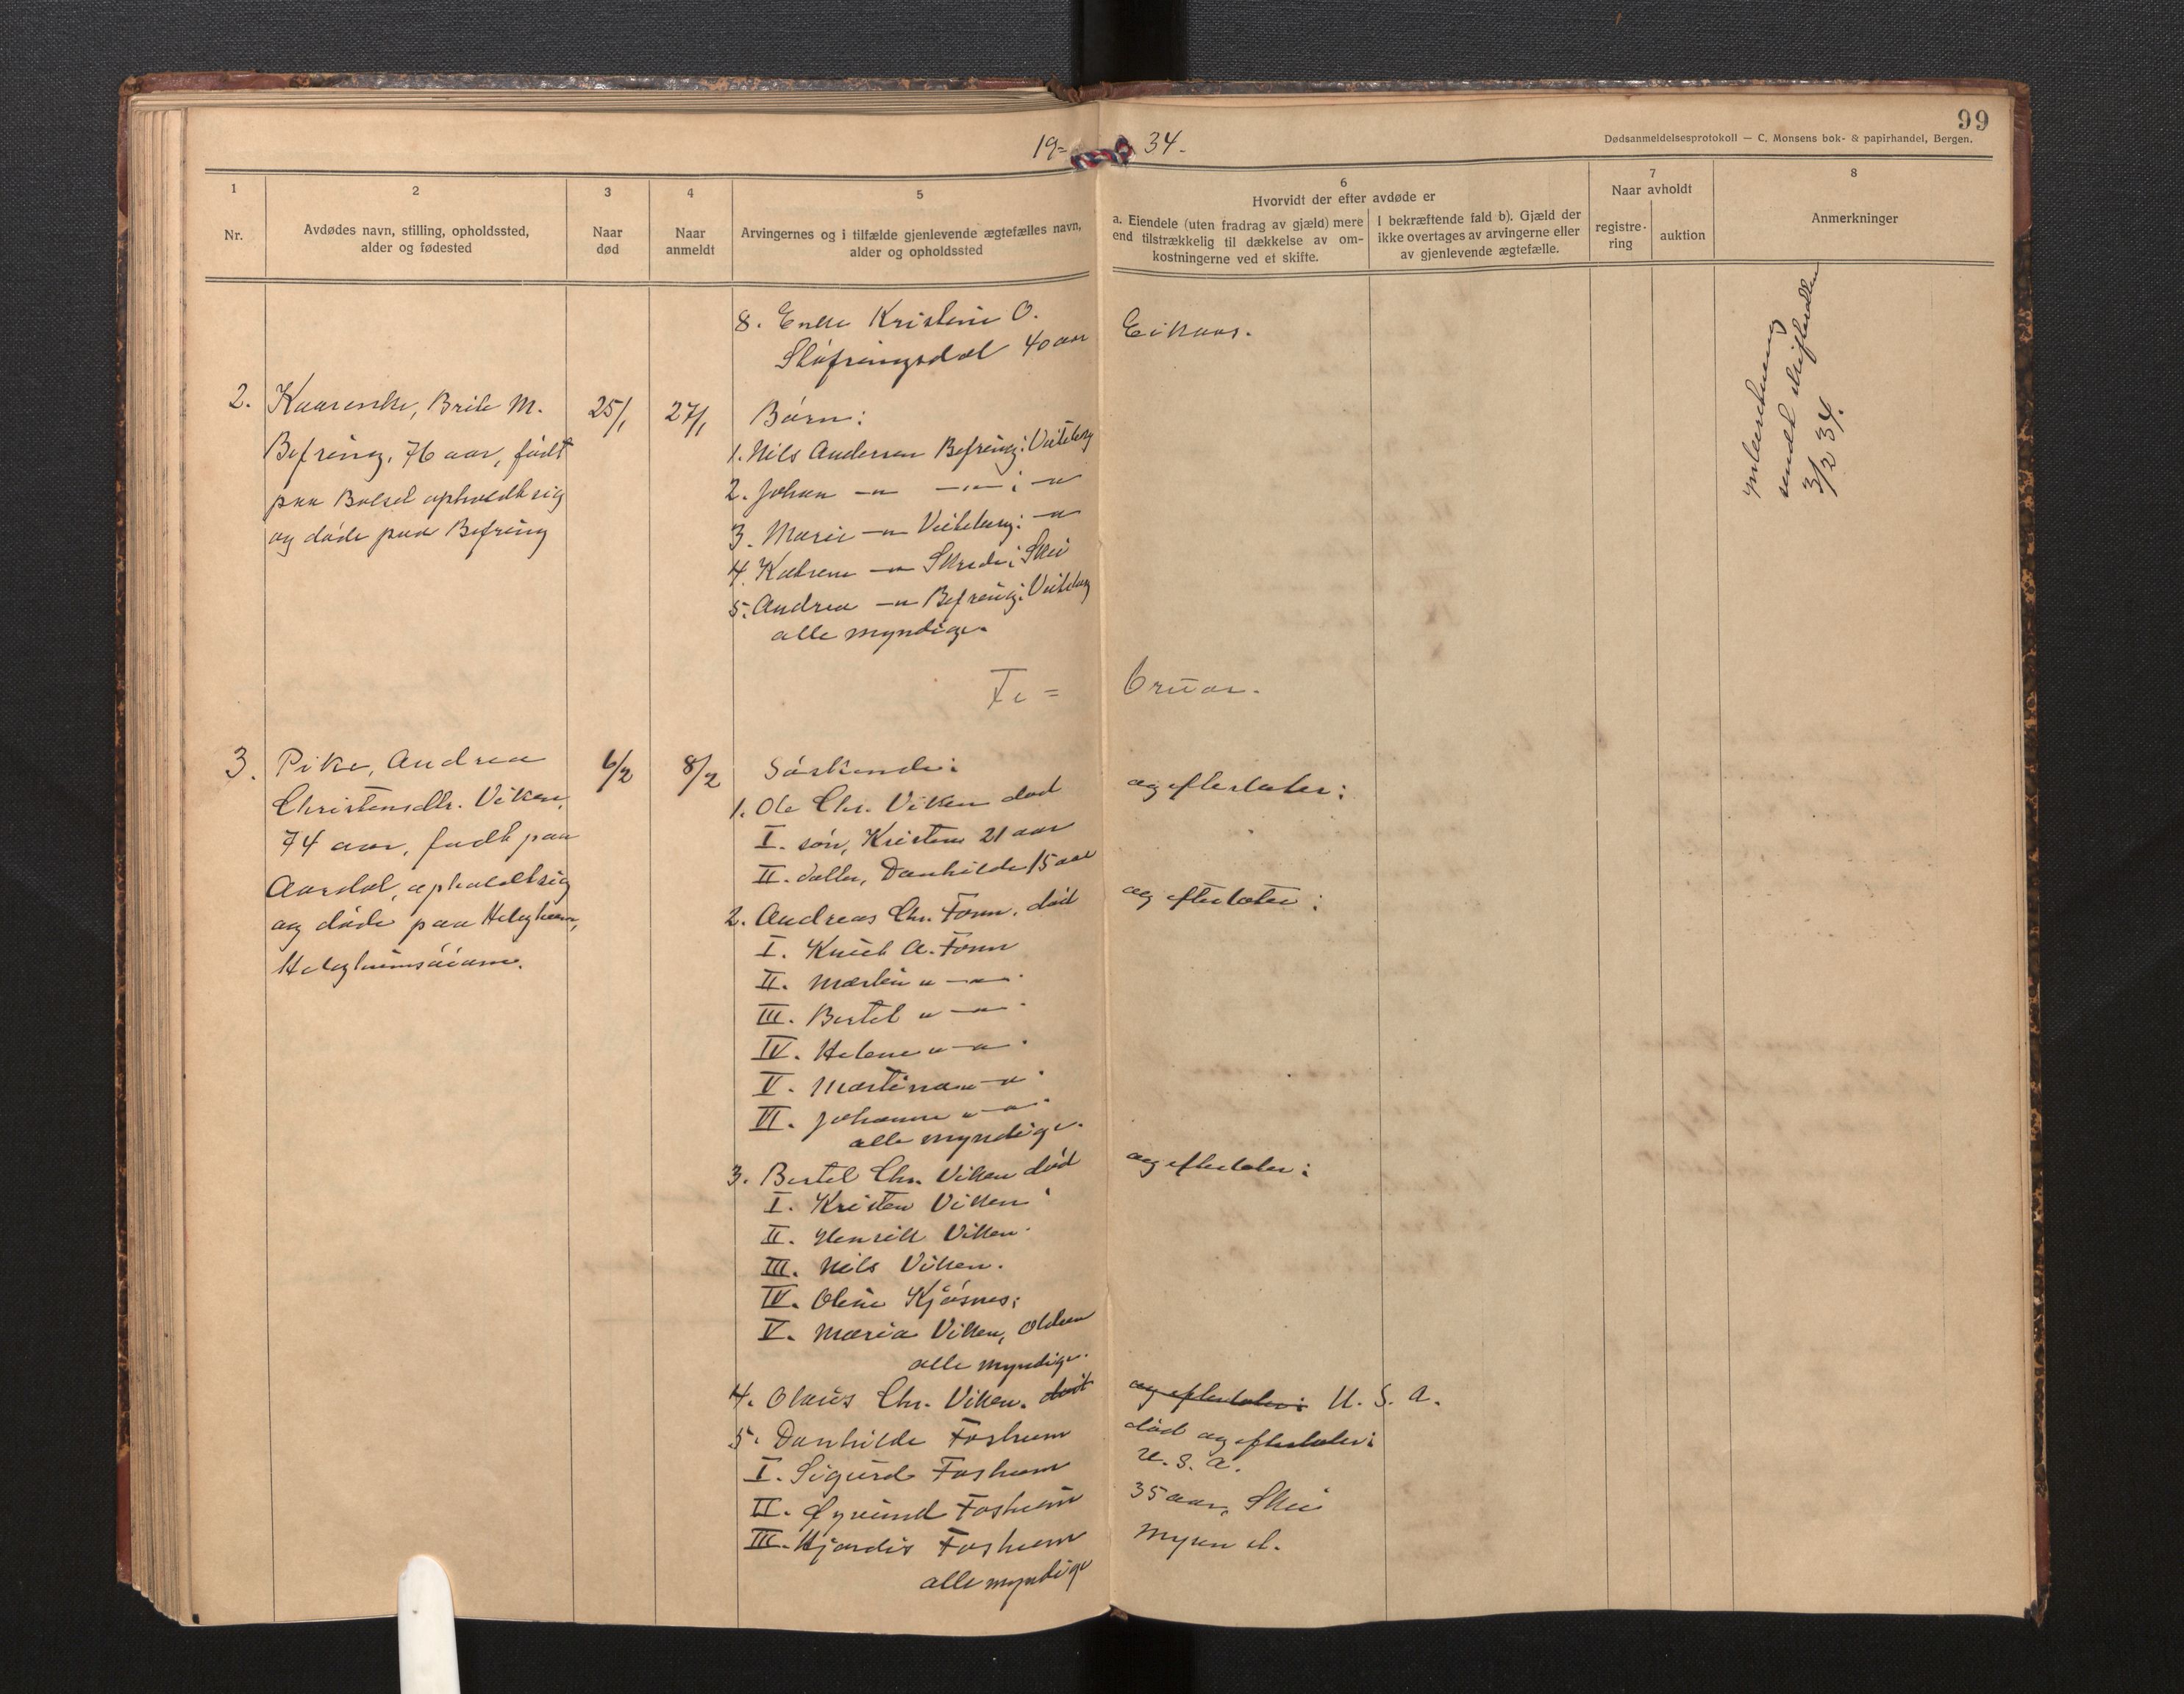 99
Dødsanmeldelsesprotokoll — C. Monsens bok- & papirhandel, Bergen.
19= 34.
1
Nr.
2
Avdødes navn, stilling, opholdssted,
alder og fødested
3
Naar
død
4
Naar
anmeldt
5
Arvingernes og i tilfælde gjenlevende ægtefælles navn,
alder og opholdssted
6
Hvorvidt der efter avdøde er
a. Eiendele (uten fradrag av gjæld) mere
end tilstrækkelig til dækkelse av om-
kostningerne ved et skifte.
I bekræftende fald b). Gjæld der
ikke overtages av arvingerne eller
av gjenlevende ægtefælle.
7
Naar avholdt
registre-
ring
auktion
8
Anmerkninger
8. Enke Kristine O.
Sløfringsdal 40 aar
Eikaas.
2.
Kaarenke, Brite M.
Befring, 76 aar, født
paa Bolset opholdt sig
og døde paa Befring
25/1
27/1
Børn:
1. Nils Andersen Befring: Veiteberg
2. Johan —"— —"— : —"
3. Marie —"— Veiteberg: —"
4. Katrene —"— Skrede: Skei
5. Andrea —"— Befring: Veiteberg
alle myndige.
sendt skifteretten
3/2 34.
Fe = bruar.
3.
Pike, Andrea
Christensdtr. Viken,
74 aar, født paa
Aardal, opholdt sig
og døde paa Helgheim,
6/2
8/2
Søskende:
1. Ole Chr. Viken død
og efterlater:
I. søn, Kristen 21 aar
II. datter, Danhilde 15 aar
2. Andreas Chr. Fonn, død
og efterlater:
I. Knut A. Fonn
II. Martin " —"— .
III. Bertel " —"— .
IV. Helene " —"— .
V. Martina " —" .
VI. Johanne " —" .
alle myndige.
3. Bertel Chr. Viken død
og efterlater:
I. Kristen Viken
II. Henrik Viken.
III. Nils Viken.
IV. Oline Kjøsnes;
V. Maria Viken, Olden
alle myndige.
4. Olaus Chr. Viken. død
og efterlater: U. S. A.
5. Danhilde Fosheim
død og efterlater:
I. Sigurd Fosheim
U. S. A.
II. Øyvind Fosheim
35 aar, Skei
III. Hjørdis Fosheim
Mysen st.
alle myndige